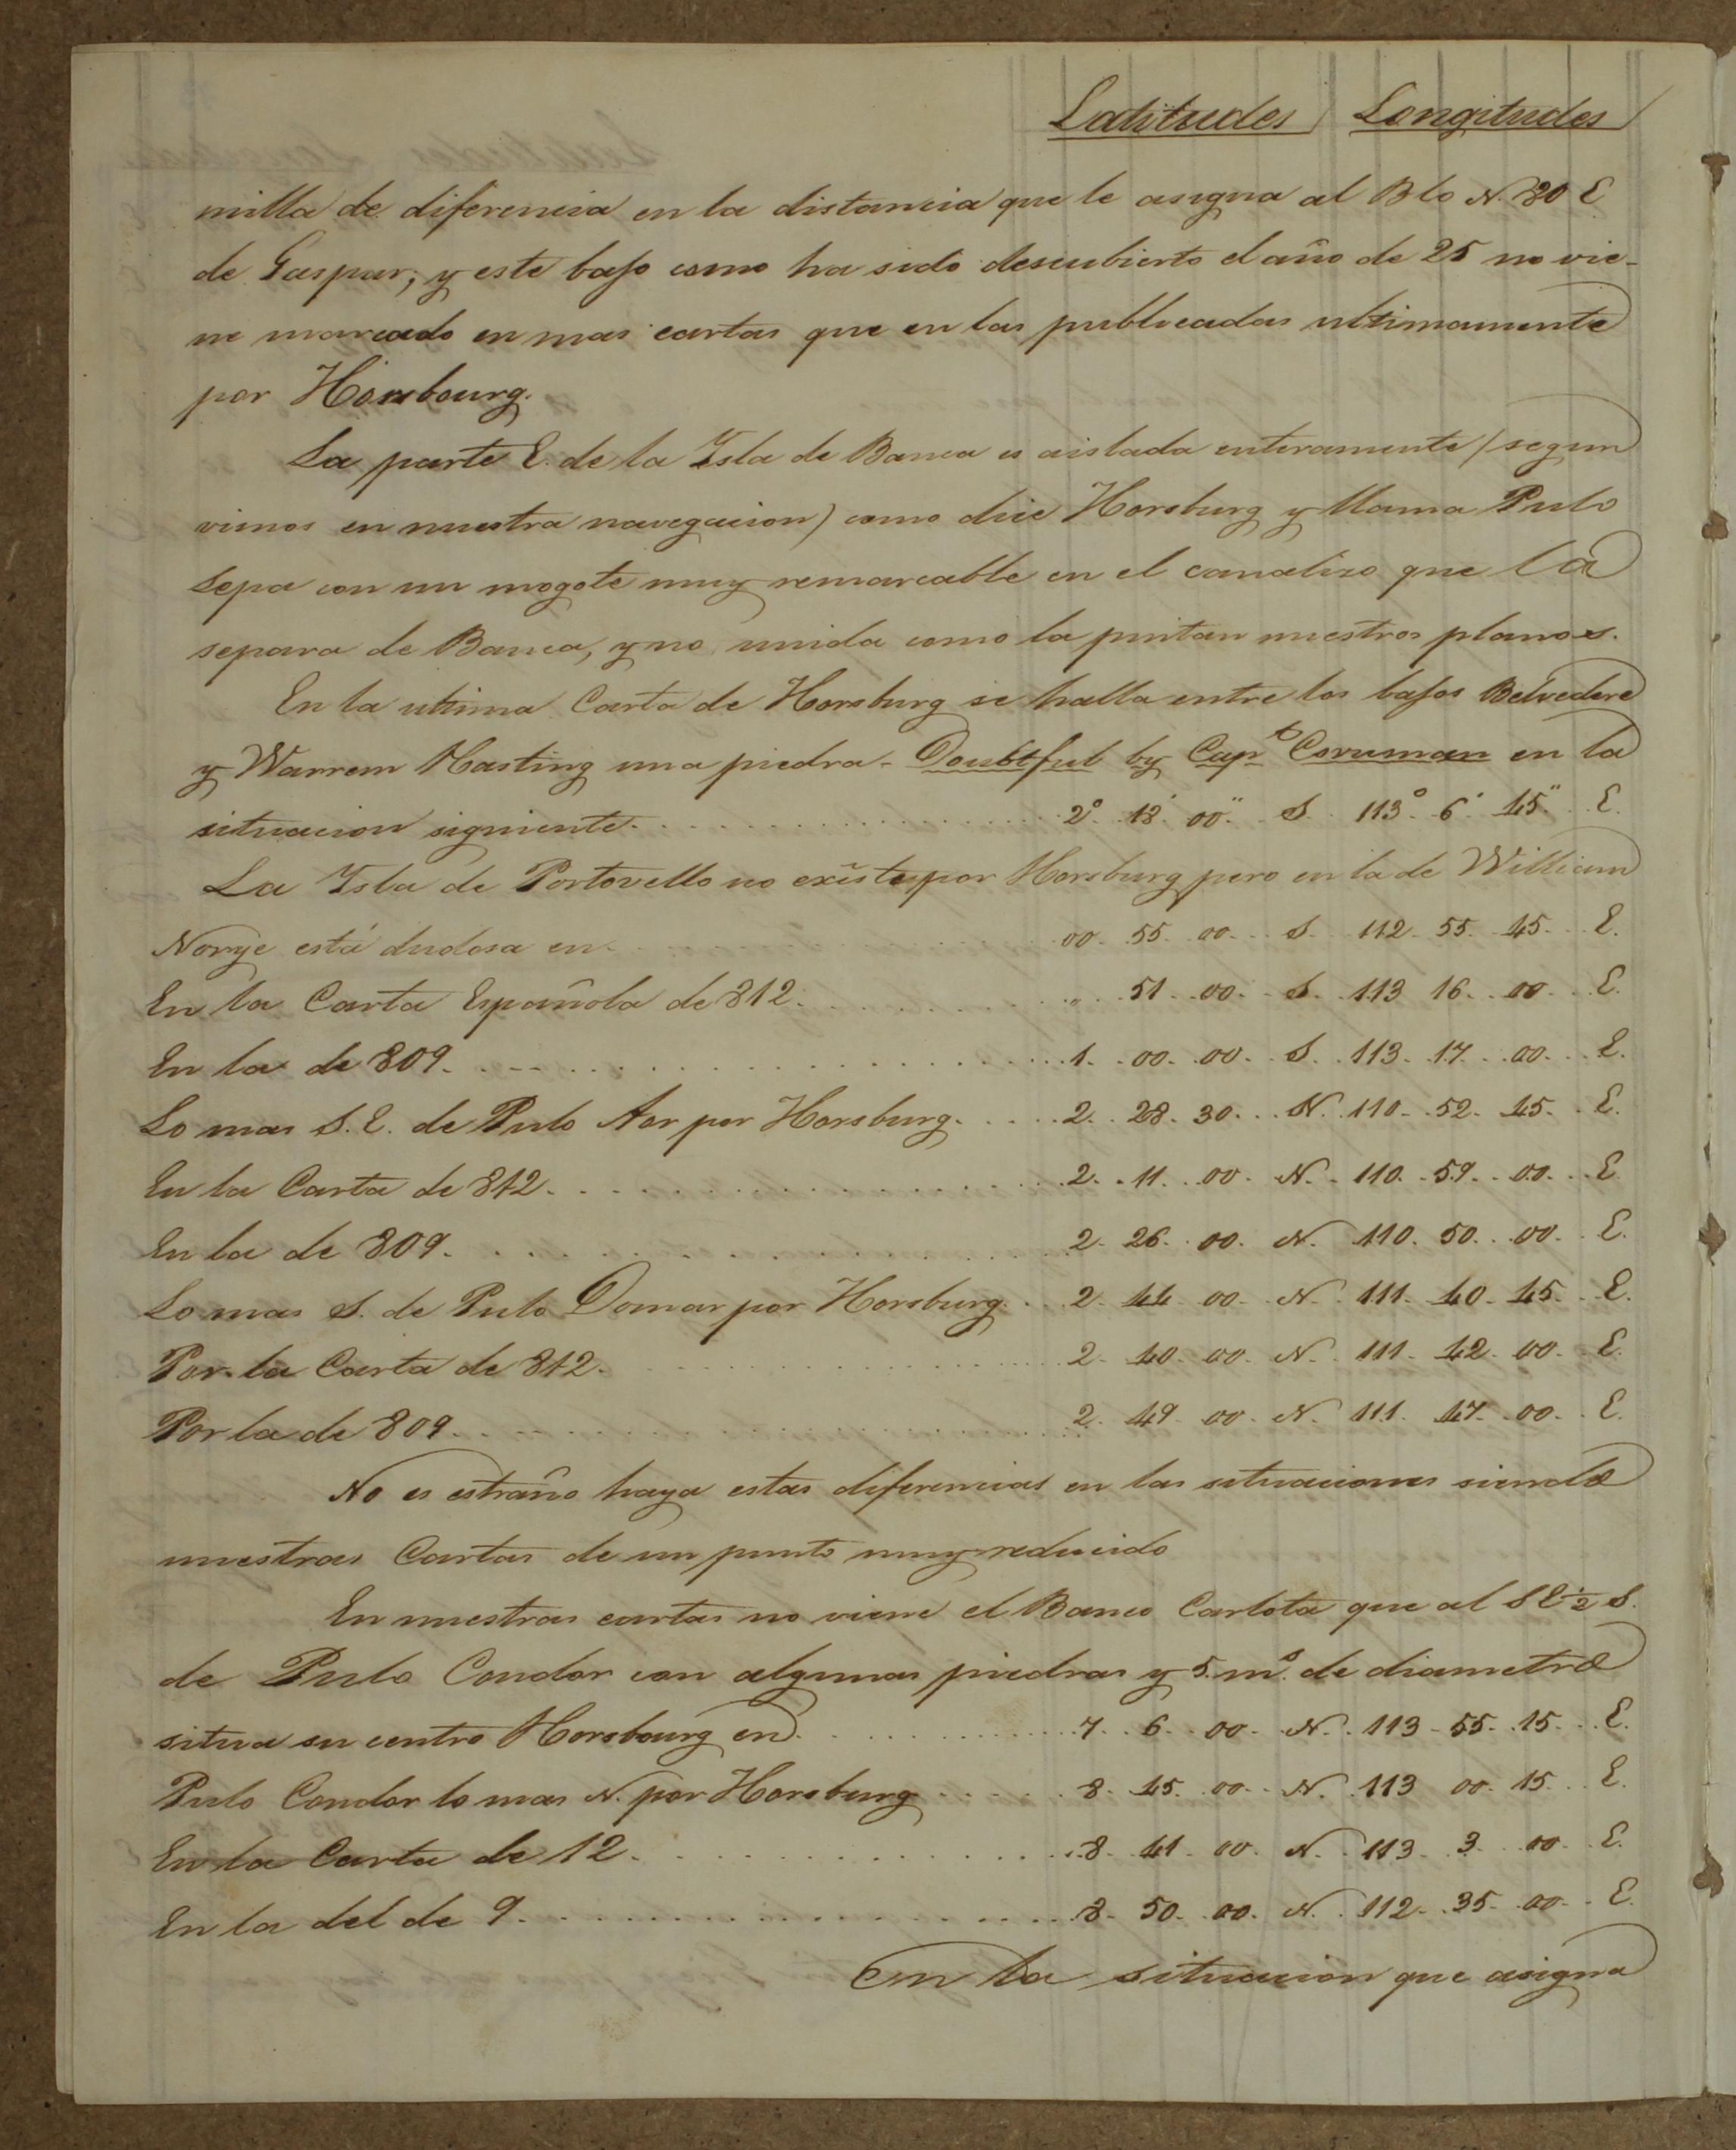 Latitudes Longitudes
milla de diferencia en la distancia que le asigna al Blo N. 80 E
de Gaspar; y este bajo como ha sido descubierto el año de 25 no vie-
ne marcado en mas cartas que en las publicadas ultimamente
por Horsbourg.
La parte E. de la Isla de Banca es aislada enteramente (segun
vimos en nuestra navegacion) como dice Horsburg y llama Pulo
Sepa con un mogote muy remarcable en el canalizo que la
separa de Banca, y no unida como la pintan nuestros planos.
En la ultima Carta de Horsburg se halla entre los bajos Belvedere
y Warrem Hasting una piedra - Doubtful by Capt Coruman en la
situacion siguiente. 2° 18' 00" S. 113° 6' 45" E.
La Isla de Portovello no existe por Horsburg pero en la de William
Norye está dudosa en. 00. 55. 00. S. 112. 55. 45. E.
En la Carta Española de 812. " 51. 00. S. 113 16. 00. E.
En la de 809. 1. 00. 00. S. 113. 17. 00. E.
Lo mas S.E. de Pulo Aor por Horsburg. 2. 28. 30. N. 110. 52. 45. E.
En la Carta de 812. 2. 11. 00. N. 110. 59. 00. E
En la de 809. 2. 26. 00. N. 110. 50. 00. E.
Lo mas S. de Pulo Domar por Horsburg. 2. 44 00. N. 111. 40. 45. E.
Por la Carta de 812. 2. 40. 00. N. 111. 42. 00. E.
Por la de 809. 2. 49. 00. N. 111. 47. 00. E.
No es estraño haya estas diferencias en las situaciones siendo
nuestras Cartas de un punto muy reducido
En nuestras cartas no viene el Banco Carlota que al SE ½ S.
de Pulo Condor con algunas piedras y 5. ms. de diametro
situa su centro Horsbourg en. 7. 6. 00. N. 113. 55. 15. E.
Pulo Condor lo mas N. por Horsburg 8. 45. 00. N. 113 00. 15. E.
En la Carta de 12. 8. 41. 00. N. 113. 3. 00. E.
En la del de 9. 8. 50. 00. N. 112. 35. 00. E.
En la situacion que asigna